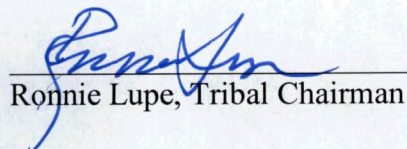 Ronnie Lupe, Tribal Chairman